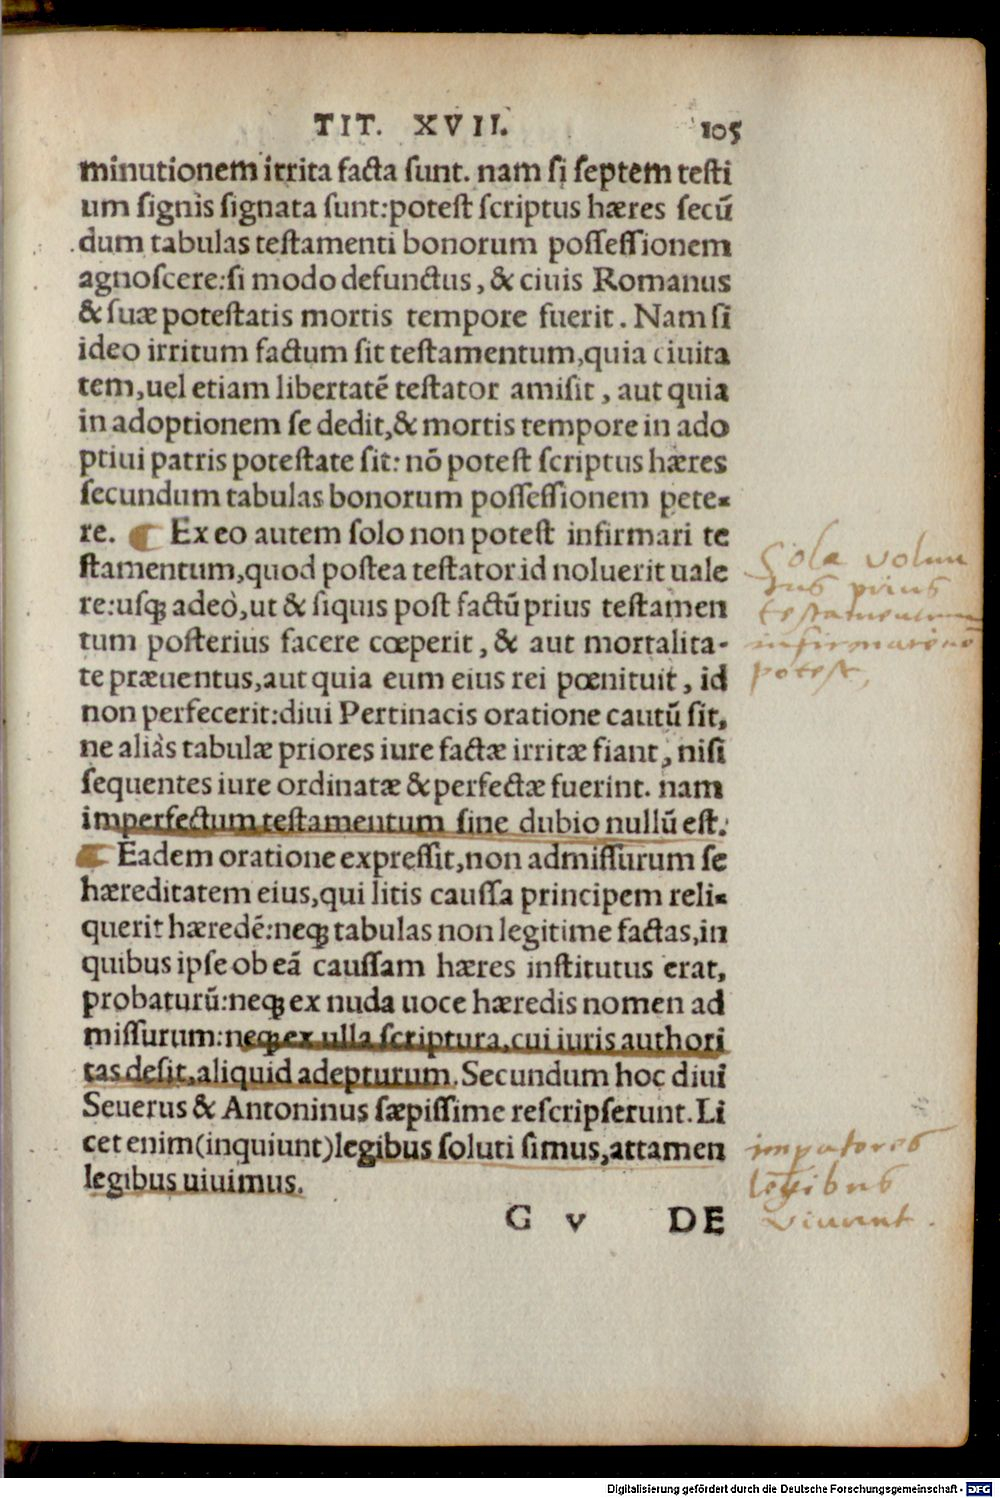 TIT. XVII. 105
minutionem irrita facta sunt. nam si septem testi
um signis signata sunt:potest scriptus hæres secū
dum tabulas testamenti bonorum possessionem
agnoscere:si modo defunctus, & ciuis Romanus
& suæ potestatis mortis tempore fuerit. Nam si
ideo irritum factum sit testamentum,quia ciuita
tem,uel etiam libertatē testator amisit, aut quia
in adoptionem se dedit,& mortis tempore in ado
ptiui patris potestate sit: nō potest scriptus hæres
secundum tabulas bonorum possessionem pete-
re. ¶ Ex eo autem solo non potest infirmari te
stamentum,quod postea testator id noluerit uale
re:usq; adeò,ut & siquis post factū prius testamen
tum posterius facere cœperit, & aut mortalita-
te præuentus,aut quia eum eius rei pœnituit, id
non perfecerit:diui Pertinacis oratione cautū sit,
ne aliàs tabulæ priores iure factæ irritæ fiant, nisi
sequentes iure ordinatæ & perfectæ fuerint. nam
imperfectum testamentum sine dubio nullū est.
¶ Eadem oratione expressit,non admissurum se
hæreditatem eius,qui litis caussa principem reli-
querit hæredē:neq; tabulas non legitime factas,in
quibus ipse ob eā caussam hæres institutus erat,
probaturū:neq; ex nuda uoce hæredis nomen ad
missurum:neq; ex ulla scriptura,cui iuris authori
tas desit,aliquid adepturum. Secundum hoc diui
Seuerus & Antoninus sæpissime rescripserunt. Li
cet enim(inquiunt)legibus soluti simus,attamen
legibus uiuimus.
G v DE
Sola volun
tas prius
testamentum
infirmare nō
potest,
impatores
legibus
vivunt.
Digitalisierung gefördert durch die Deutsche Forschungsgemeinschaft - DFG